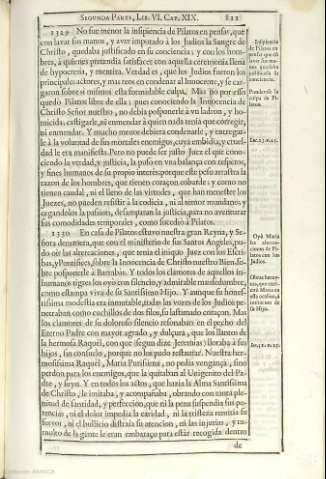 SEGUNDA PARTE, LIB. VI. CAP. XIX. 811
1329 No fue menor la insipiencia de Pilatos en pensar, que
con lavar sus manos, y aver imputado à los Judios la Sangre de
Christo, quedaba justificado en su conciencia; y con los hom-
bres, à quienes pretendia satisfacer con aquella ceremonia llena
de hypocresia, y mentira. Verdad es, que los Judios fueron los
principales actores, y mas reos en condenar al Innocente, y se car-
garon sobre si mismos esta formidable culpa. Mas no por esso
quedò Pilatos libre de ella; pues conociendo la Innocencia de
Christo Señor nuestro, no debia posponerle à vn ladron, y ho-
micida, castigarle, ni enmendar à quien nada tenia que corregir,
ni enmendar. Y mucho menos debiera condenarle, y entregar-
le à la voluntad de sus mortales enemigos, cuya embidia, y cruel-
dad le era manifiesta. Pero no puede ser justo Juez el que cono-
ciendo la verdad, y justicia, la puso en vna balança con respetos,
y fines humanos de su proprio interès; porque este peso arrastra la
razon de los hombres, que tienen coraçon cobarde; y como no
tienen caudal, ni el lleno de las virtudes, que han menester los
Juezes, no pueden resistir à la codicia, ni al temor mundano; y
cegandolos la passion, desamparan la justicia, para no aventurar
sus comodidades temporales, como sucediò à Pilatos.
1330 En casa de Pilatos estuvo nuestra gran Reyna, y Se-
ñora de manera, que con el ministerio de sus Santos Angeles, pu-
do oir las altercaciones, que tenia el iniquo Juez con los Escri-
bas, y Pontifices, sobre la Innocencia de Christo nuestro Bien, so-
bre posponerle à Barrabàs. Y todos los clamores de aquellos in-
humanos tigres los oyò con silencio, y admirable mansedumbre,
como estampa viva de su Santissimo Hijo. Y aunque su hones-
tissima modestia era inmutable, todas las vozes de los Judios pe-
netraban como cuchillos de dos filos, su lastimado coraçon. Mas
los clamores de su doloroso silencio resonaban en el pecho del
Eterno Padre con mayor agrado, y dulçura, que los llantos de
la hermosa Raquèl, con que (segun dize Jeremias) lloraba à sus
hijos, sin consuelo, porque no los pudo restaurar. Nuestra her-
mosissima Raquèl, Maria Purissima, no pedia vengança, sino
perdon para los enemigos, que la quitaban al Unigenito del Pa-
dre, y suyo. Y en todos los actos, que hazia la Alma Santissima
de Christo, le imitaba, y acompañaba, obrando con tanta ple-
nitud de santidad, y perfeccion, que ni la pena suspendia sus po-
tencias, ni el dolor impedia la caridad, ni la tristeza remitia su
fervor, ni el bullicio distraia su atencion, ni las injurias, y tu-
multo de la gente le eran embarazo para estàr recogida dentro
de
Insipiencia
de Pilatos en
Ponderase la
culpa de Pi-
latos.
Oyò Maria
las alterca-
ciones de Pi-
latos con los
Judios.